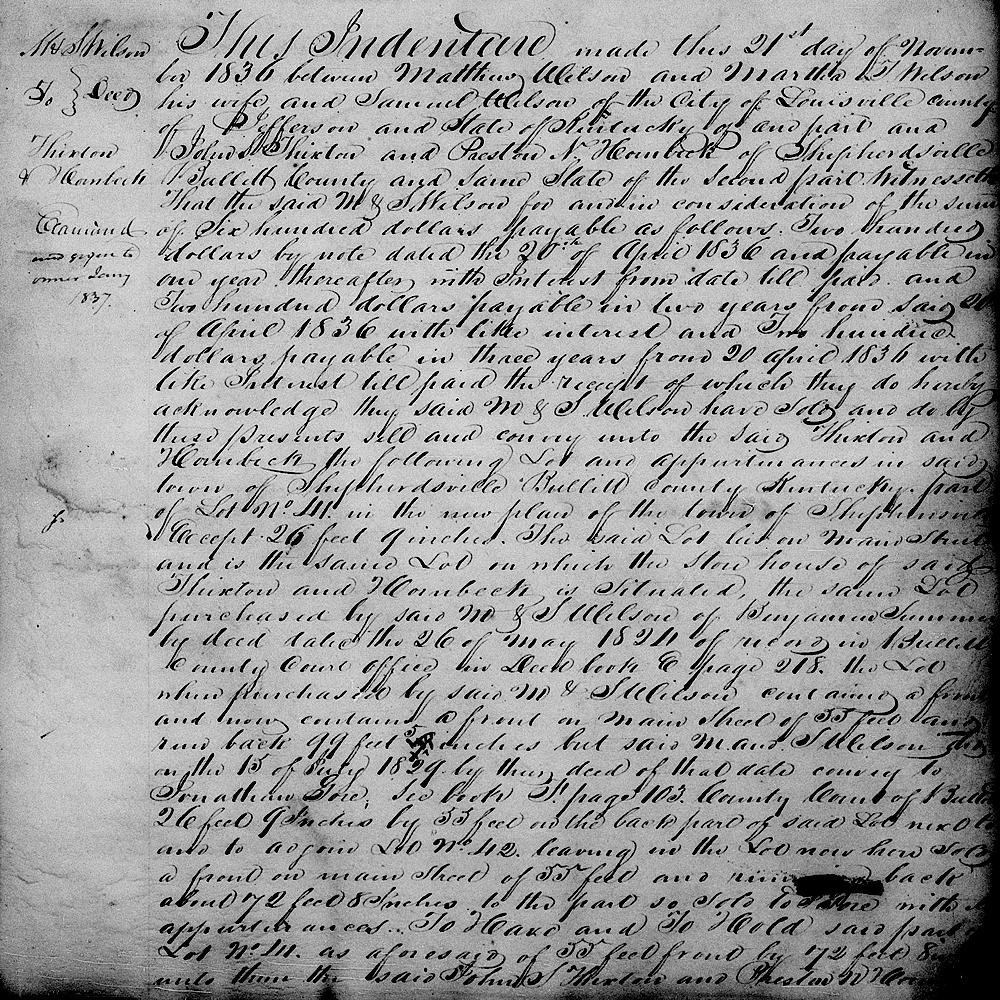 M & S Wilson
To } Deed
Thixton
& Hornbeck
Examined
and given to
1837.
This Indenture made this 21st day of Novem-
ber 1836 between Matthew Wilson and Martha T Wilson
his wife, and Samuel Wilson of the City of Louisville county
of Jefferson and State of Kentucky of one part and
John S Thixton and Preston N. Hornbeck of Shepherdsville
Bullitt County and same State of the second part Witnesseth
That the said M & S Wilson for and in consideration of the sum
of Six hundred dollars payable as follows. Two hundred
dollars by note dated the 20th of April 1836 and payable in
one year thereafter with Interest from date till paid. and
Two hundred dollars payable in two years from said 20
of April 1836 with like interest and Two hundred
dollars payable in three years from 20 april 1836 with
like Interest till paid the receipt of which they do hereby
acknowledge they said M & S Wilson have Sold and do by
these presents sell and convey unto the said Thixton and
Hornbeck the following Lot and appurtenances in said
town of Shepherdsville Bullitt county Kentucky. part
of Lot No. 41 in the new plan of the town of Shepherdsville
Except 26 feet 9 inches. The said Lot lies on Main Street
and is the same Lot on which the Store house of said
Thixton and Hornbeck is Situated, the same Lot
purchased by said M & S Wilson of Benjamin Summers
by deed dated the 26 of May 1824 of record in Bullitt
County Court office in Deed book E page 218. the Lot
when purchased by said M & S Wilson contained a front
and now contains a front on Main Street of 55 feet and
run back 99 feet 5 inches but said M and S Wilson did
on the 15 of 1829 by their deed of that date convey to
Jonathan Gore, See book page 103. County Court of Bullitt
26 feet 9 Inches by 55 feet on the back part of said Lot next to
and to adjoin Lot No. 42. leaving in the Lot now here Sold
a front on main Street of 55 feet and back
about 72 feet 8 Inches to the part so Sold to Gore with
appurtenances. To Have and To Hold said part
Lot No. 41. as aforesaid of 55 feet front by 72 feet 8 in
unto them the said John S Thixton and Preston N Hor